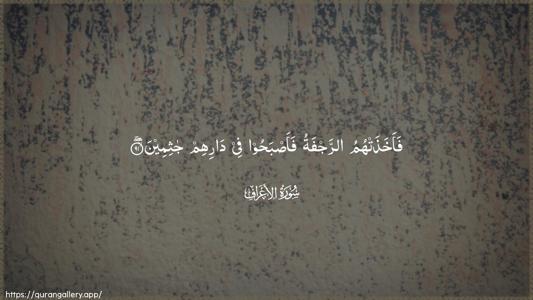 فَأَخَذَتْهُمُ الرَّجْفَةُ فَأَصْبَحُوْا فِيْ دَارِهِمْ جٰثِمِيْنَ ۝٩١
سُورَةُ الأَعْرَافِ
https://qurangallery.app/